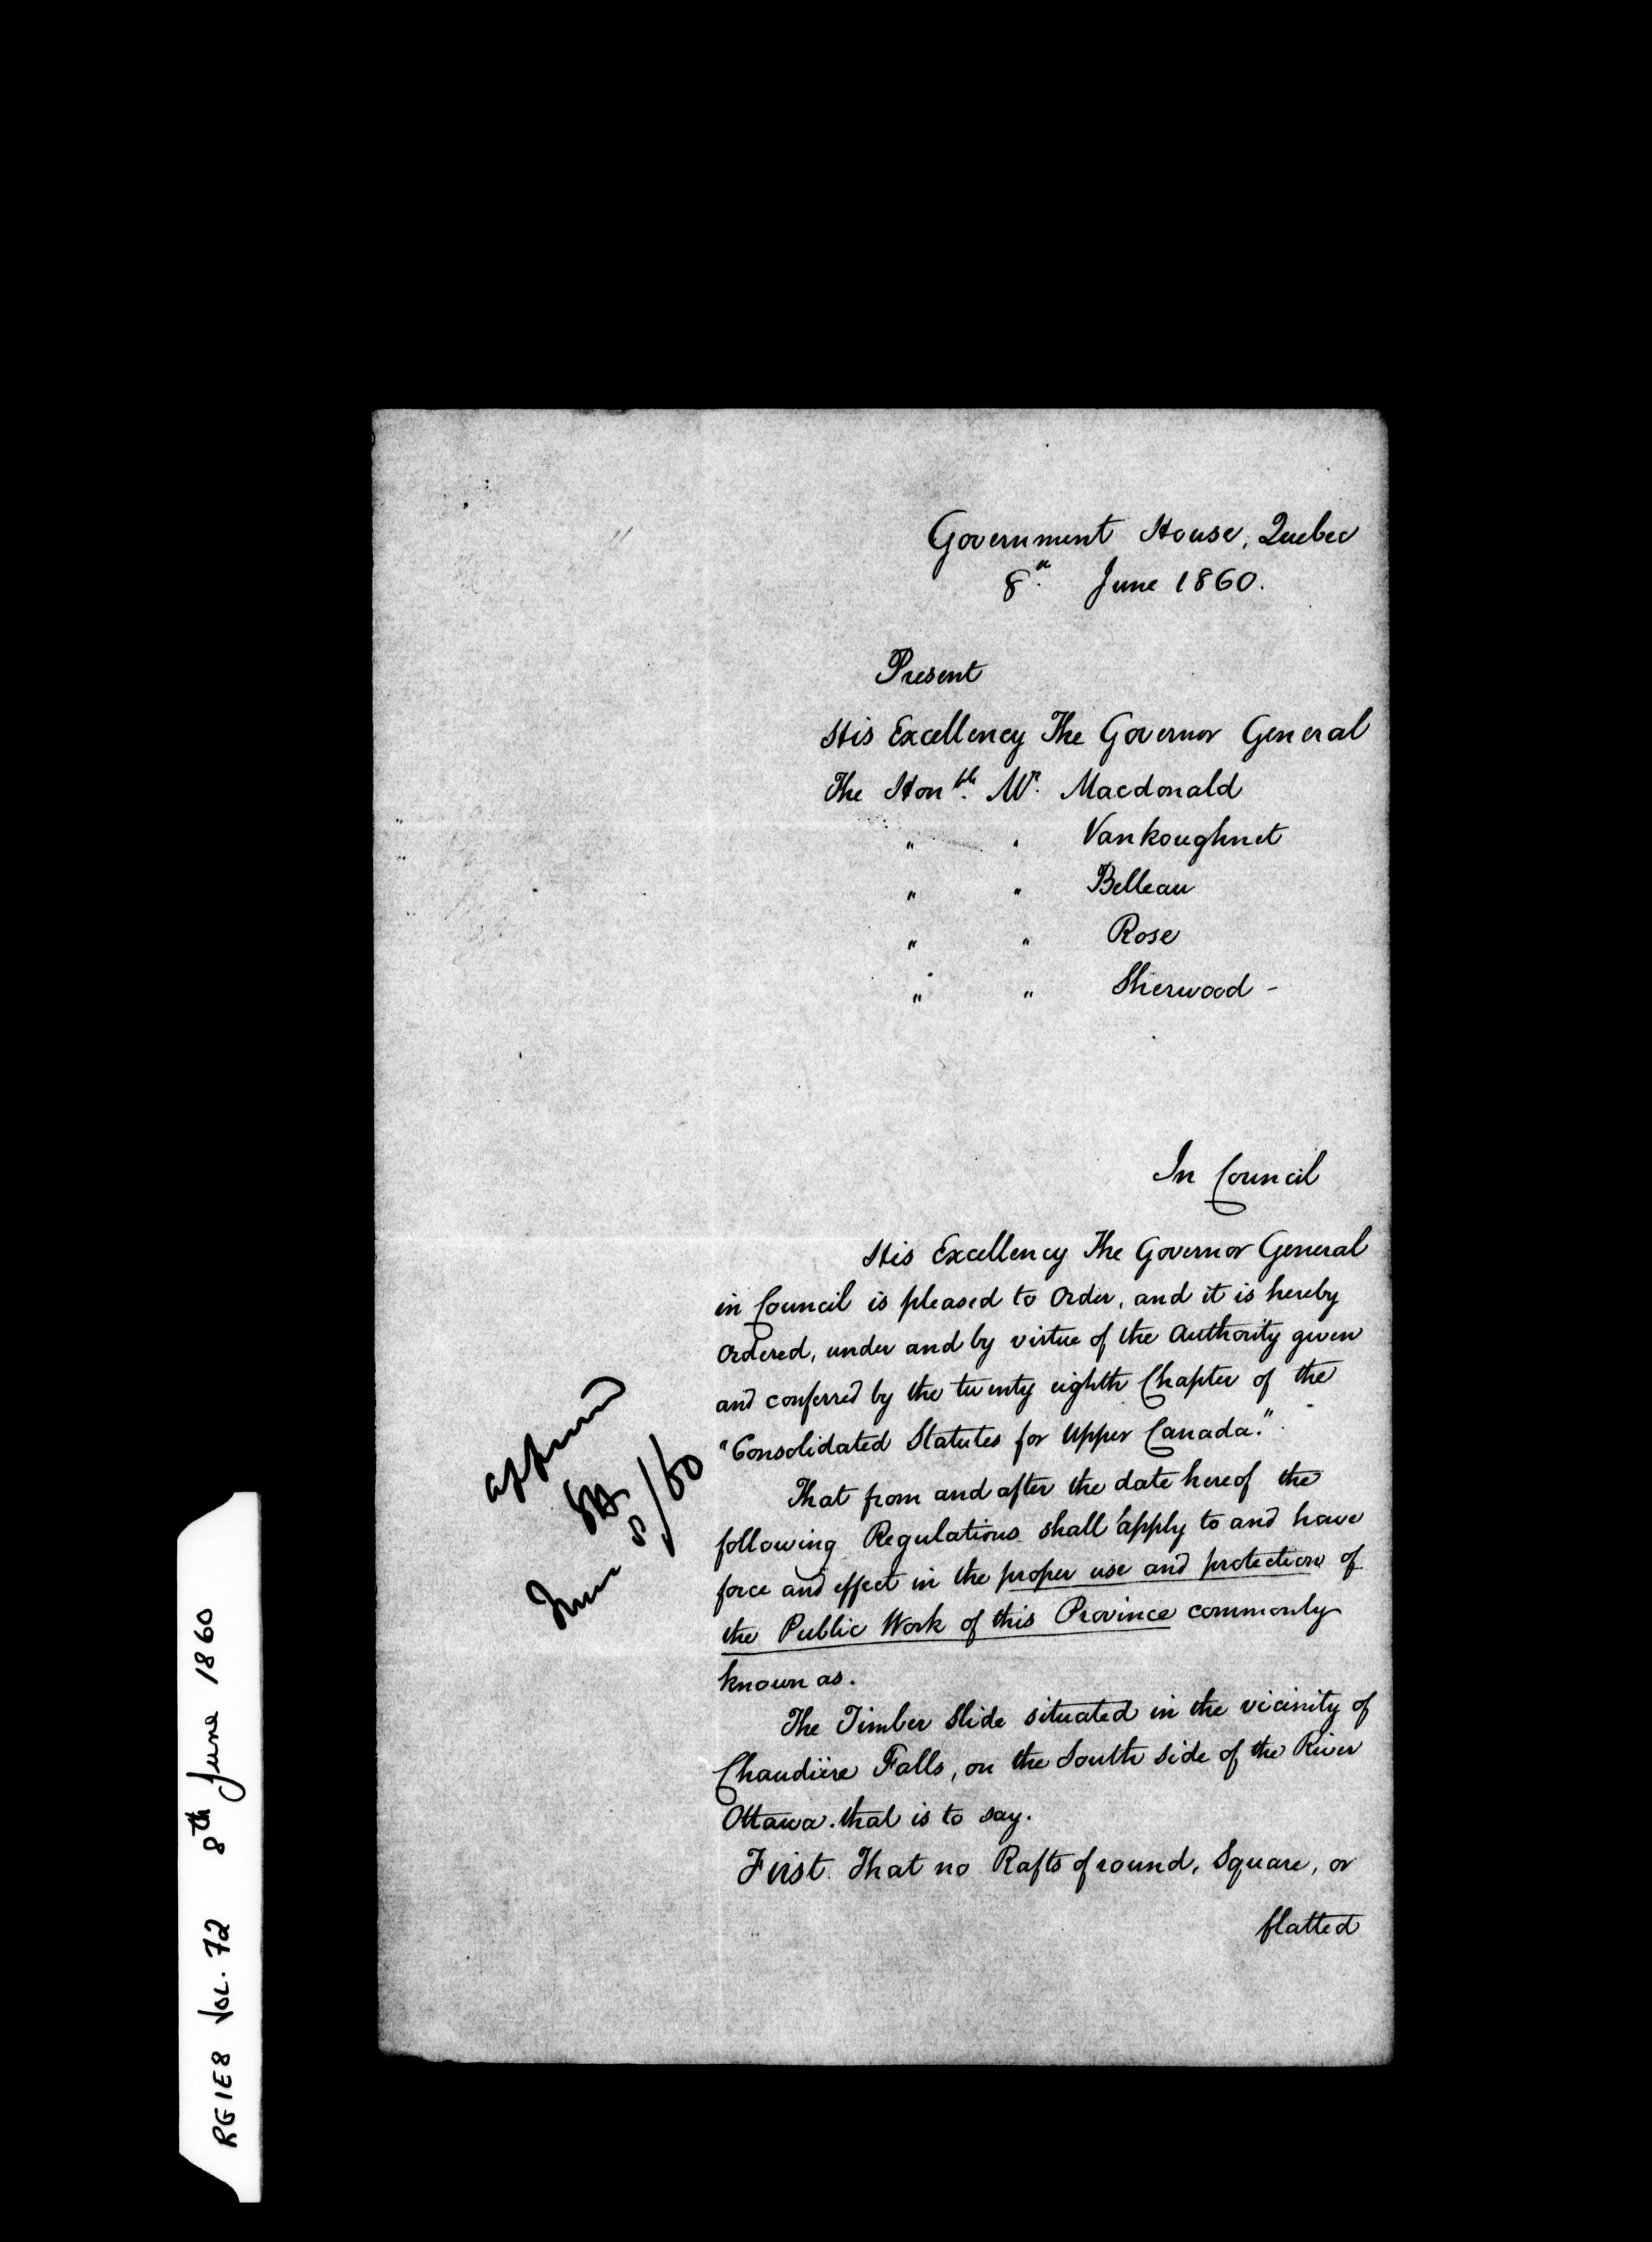 Government House, Quebec
8th. June 1860.
Present
His Excellency The Governor General
The Honble. Mr. Macdonald
" " Vankoughnet
" " Belleau
" " Rose
" " Sherwood -
In Council
His Excellency The Governor General
in Council is pleased to Order, and it is hereby
Ordered, under and by virtue of the Authority given
and conferred by the twenty eighth Chapter of the
"Consolidated Statutes for Upper Canada."
That from and after the date hereof the
following Regulations shall apply to and have
force and effect in the proper use and protection of
the Public Work of this Province commonly
known as.
The Timber Slide situated in the vicinity of
Chaudière Falls, on the South side of the River
Ottawa. that is to say.
First. That no Rafts of round, Square, or
flatted
approved
June 8/60
RG1E8 VOL. 72 8th June 1860